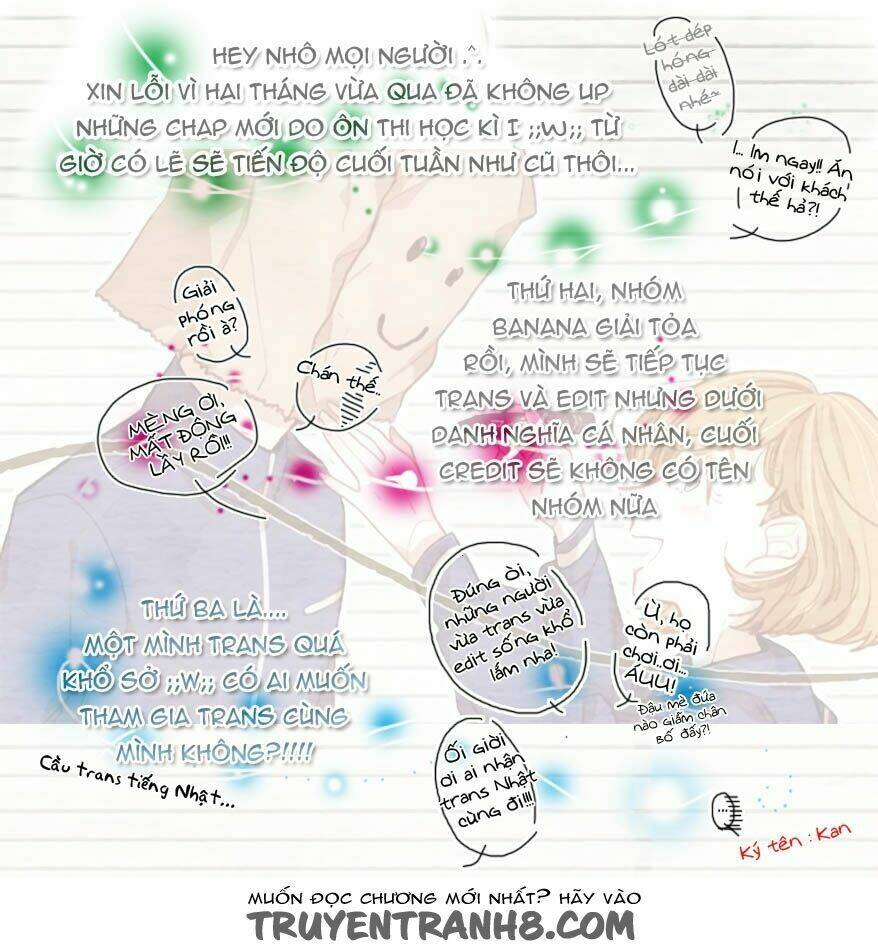 HEY NHÔ MỌI NGƯỜI .^.
XIN LỖI VÌ HAI THÁNG VỪA QUA ĐÃ KHÔNG UP
NHỮNG CHAP MỚI DO ÔN THI HỌC KÌ I ;;W;; TỪ
GIỜ CÓ LẼ SẼ TIẾN ĐỘ CUỐI TUẦN NHƯ CŨ THÔI...
Lót dép
hóng
dài dài
nhé~
I... Im ngay!! Ăn
nói với khách
thế hả?!
Giải
phóng
rồi à?
Chán thế..
MÈNG ƠI,
MẤT ĐỘNG
LÂY RỒI!!!
THỨ HAI, NHÓM
BANANA GIẢI TỎA
RỒI, MÌNH SẼ TIẾP TỤC
TRANS VÀ EDIT NHƯNG DƯỚI
DANH NGHĨA CÁ NHÂN, CUỐI
CREDIT SẼ KHÔNG CÓ TÊN
NHÓM NỮA
Đúng òi,
những người
vừa trans vừa
edit sống khổ
lắm nha!
Ừ, họ
còn phải
chơi..ơi...
ÁUU!
Đậu mè đứa
nào giẫm chân
bố đấy?!
THỨ BA LÀ....
MỘT MÌNH TRANS QUÁ
KHỔ SỞ ;;W;; CÓ AI MUỐN
THAM GIA TRANS CÙNG
MÌNH KHÔNG?!!!!
Cầu trans tiếng Nhật...
Ối giời
ơi ai nhận
trans Nhật
cùng đi!!!
...
Ký tên : Kan
MUỐN ĐỌC CHƯƠNG MỚI NHẤT? HÃY VÀO
TRUYENTRANH8.COM